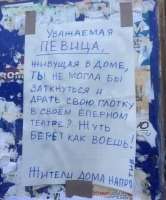 УВАЖАЕМАЯ
ПЕВИЦА,
ЖИВУЩАЯ В ДОМЕ,
ТЫ НЕ МОГЛА БЫ
ЗАТКНУТЬСЯ И
ДРАТЬ СВОЮ ГЛОТКУ
В СВОЁМ ЁПЕРНОМ
ТЕАТРЕ? ЖУТЬ
БЕРЕТ КАК ВОЕШЬ.
ЖИТЕЛИ ДОМА НАПРОТИВ